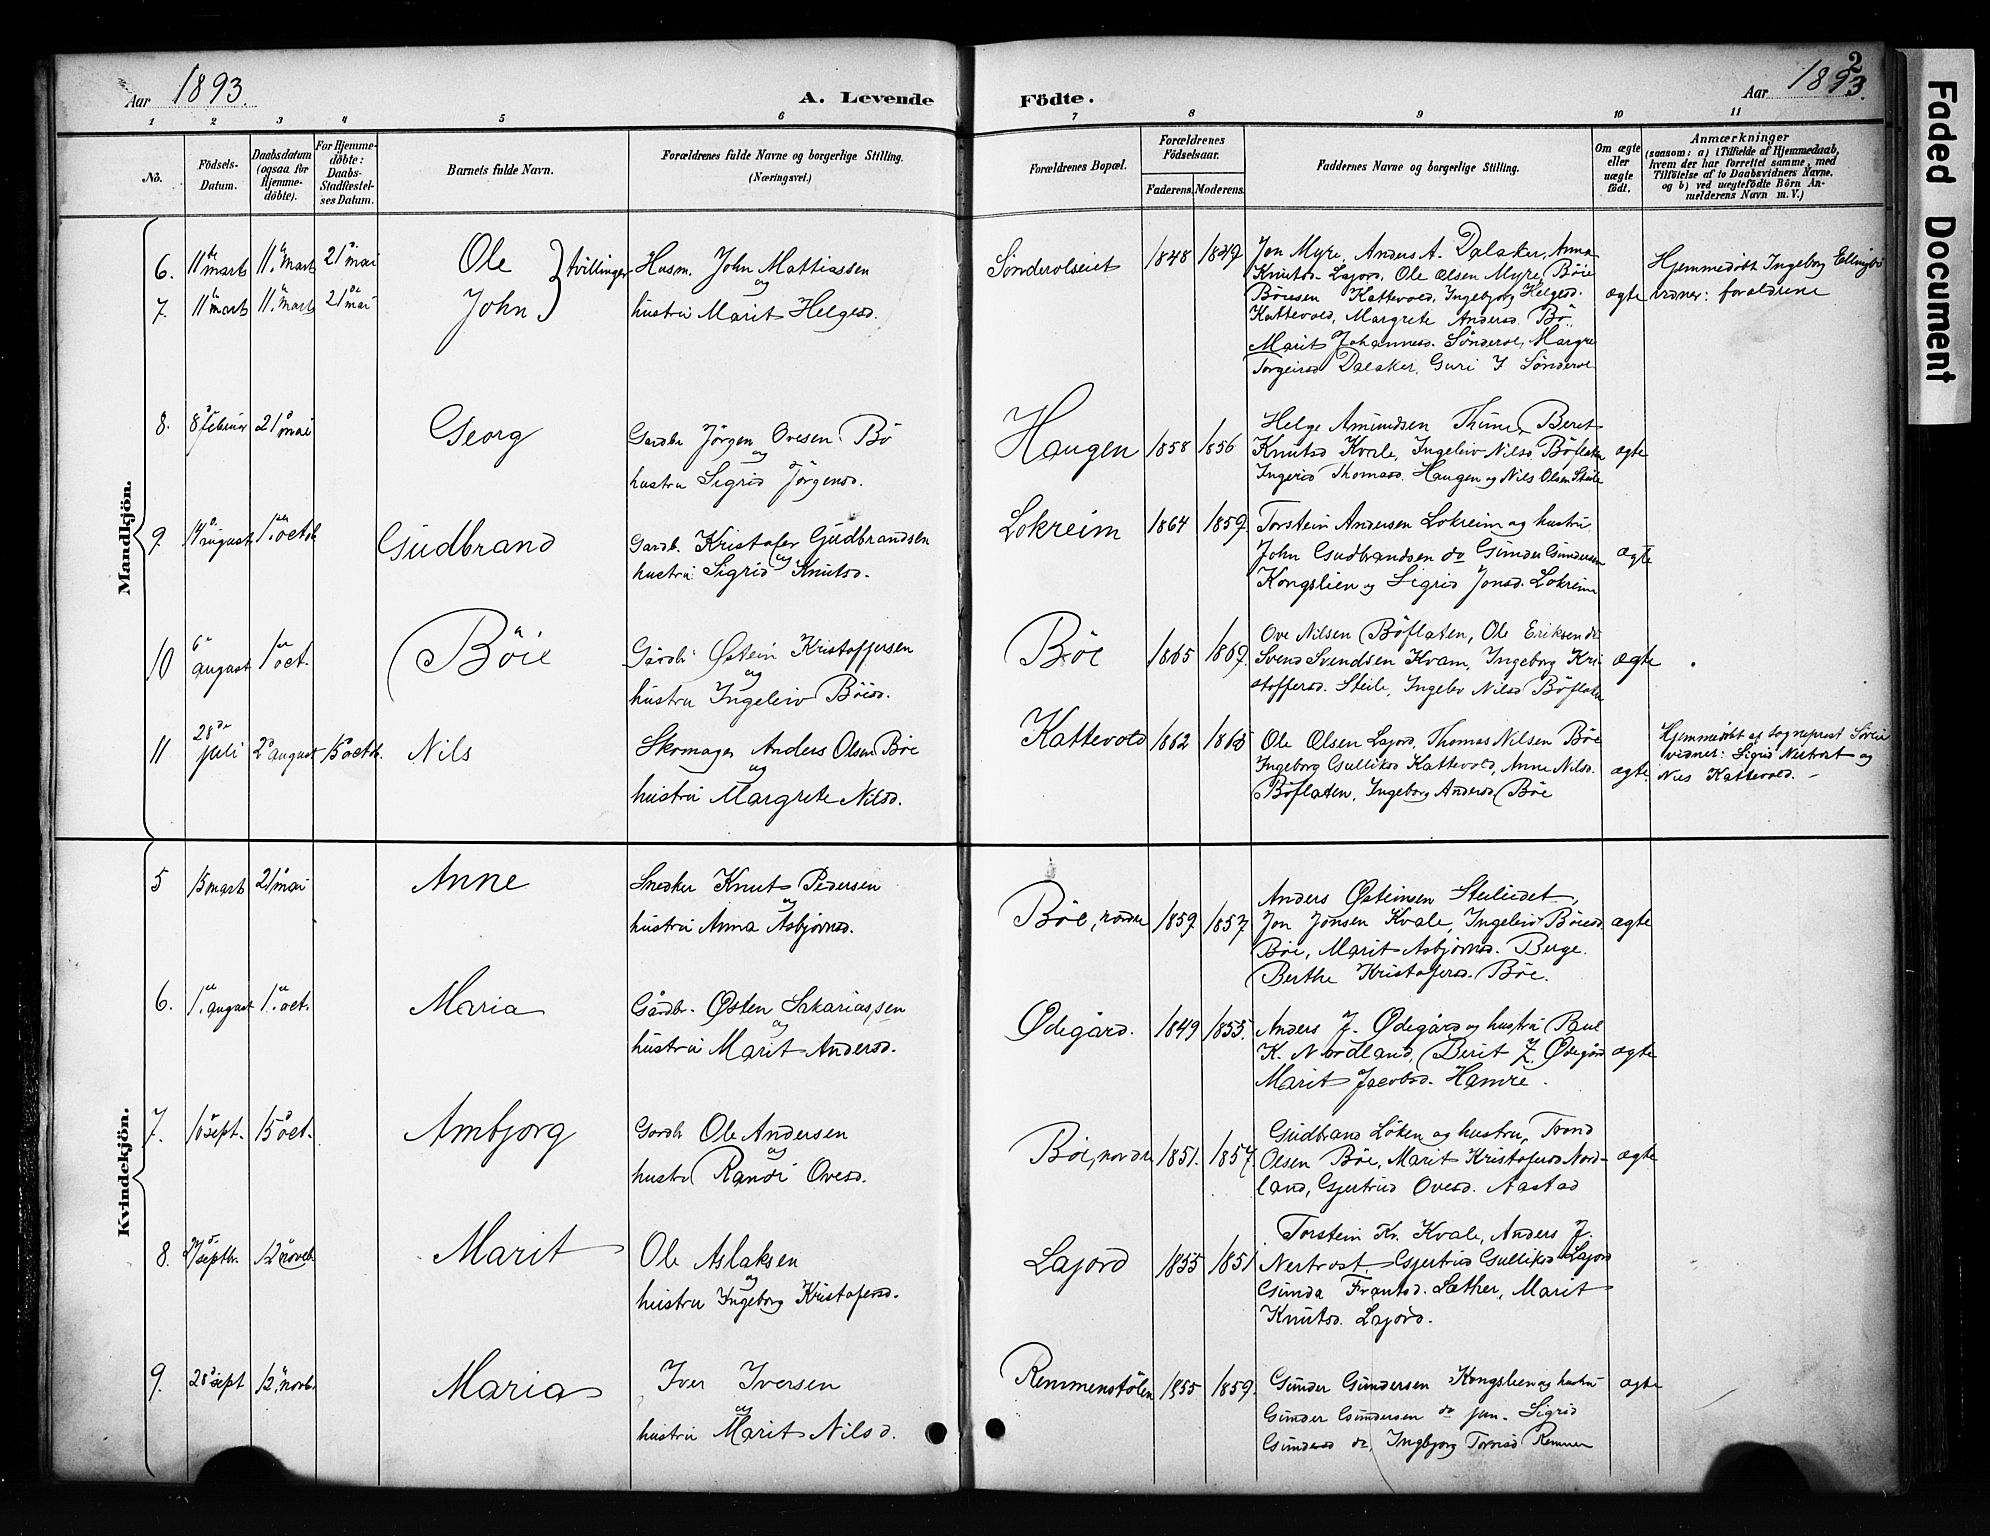 Aar 1893. A. Levende Födte. Aar 1893. 2
1 2 3 4 5 6 7 8 9 10 11
No.
Födsels-Datum.
Daabsdatum (ogsaa for Hjemme-döbte).
For Hjemme-döbte: Daabs-Stadfæstel-ses Datum.
Barnets fulde Navn.
Forældrenes fulde Navne og borgerlige Stilling. (Næringsvei.)
Forældrenes Bopæl.
Forældrenes Födselsaar.
Faderens. Moderens.
Faddernes Navne og borgerlige Stilling.
Om ægte eller uægte födt.
Anmærkninger (saasom: a) i Tilfælde af Hjemmedaab, hvem der har forrettet samme, med Tilföielse af to Daabsvidners Navne. og b) ved uægtefödte Börn An-melderens Navn m.V.)
Faded Document
Mandkjön.
6. 11te marts 11. marts 21 mai Ole } tvillinger Husm. John Mattiassen
og
7. 11 marts 11. marts 21 mai John hustru Marit Helgesd.
Sønderolseiet 1848 1849 ægte
Jon Myre, Anders A. Dalaker, Anna
Knutsd. Lajord, Ole Olsen Myre, Böie
Böiesen Kattevold, Ingebjorg Helgesd.
Kattevold, Margrete Andersd. Bö.
Marit Johannesd. Sönderol, Margre
Torgeirsd Dalaker, Guri J Sönderol
Hjemmedöbt Ingeborg Ellingbö
vidner: forældrene
8. 8 februar 21 mai Georg Gardbr Jörgen Ovesen Bö
og
hustru Sigrid Jörgensd.
Haugen 1858 1856 ægte
Helge Amundsen Thune, Beret
Knutsd Kvale, Ingeleiv Nilsd Böflaten
Ingerid Thomasd. Haugen og Nils Olsen Steile
9. 14 august 1. octob. Gudbrand Gardb. Kristofer Gudbrandsen
og
hustru Sigrid Knutsd.
Lokreim 1864 1859. ægte
Torstein Andersen Lokreim og hustru
John Gudbrandsen do Gunder Gundersen
Kongslien og Sigrid Jonsd. Lokreim
10 6 august 1 oct. Böie Gårdbr Østein Kristoffersen
og
hustru Ingeleiv Böiesd.
Böe 1865 1869. ægte
Ove Nilsen Böflaten, Ole Eriksen do
Svend Svendsen Kvam, Ingeborg Kri-
stoffersd. Steile, Ingelev Nilsd Böflaten
11 28de juli 2 august 15 octb. Nils Skomager Anders Olsen Böe
og
hustru Margrete Nilsd.
Kattevold 1862 1865 ægte.
Ole Olsen Lajord, Thomas Nilsen Böe
Ingeborg Gulliksd Kattevold, Anne Nilsd.
Böflaten, Ingeborg Andersd Böe
Hjemmedöbt af sogneprest
vidner: Sigrid Nertrost og
Nils Kattevold. –
Kvindekjön.
5 15 marts 21 mai Anne Snedker Knut Pedersen
og
hustru Anna Asbjörnsd.
Böe, nordre 1859. 1857 ægte
Anders Østeinsen Steileidet,
Jon Jonsen Kvale, Ingeleiv Böiesd.
Böe, Marit Asbjörnsd. Berge.
Berthe Kristofersd. Böe.
6. 1. august 1. oct. Maria Gårdbr. Østen Sakariassen
og
hustru Marit Andersd.
Ødegård. 1849 1855. ægte
Anders J. Ødegård og hustru Paul
K. Nordland, Berit Z. Ødegård
Marit Jacobsd. Hamre.
7. 10 sept. 15 oct. Ambjorg Gardbr Ole Andersen
og
hustru Randi Ovesd.
Böe, nordre 1851. 1857. ægte
Gudbrand Löken og hustru, Trond
Olsen Böe, Marit Kristofersd Nord-
land, Gjertrud Ovesd. Aastad
8. 27 septbr. 12 novcb. Marit Ole Aslaksen
og
hustru Ingeborg Kristofersd.
Lajord 1855 1851
Torstein Kr. Kvale, Anders J.
Nertrost. Gjertrud Gulliksd Lajord
Gunda Frantsd. Læther, Marit
Knutsd. Lajord.
9. 28 sept 12. novb. Maria Iver Iversen
og
hustru Marit Nilsd.
Remmenstölen 1855 1859. ægte
Gunder Gundersen Kongslien og hustru
Gunder Gundersen do jun. Sigrid
Gundersd do, Ingbjorg Tornsd Remmen